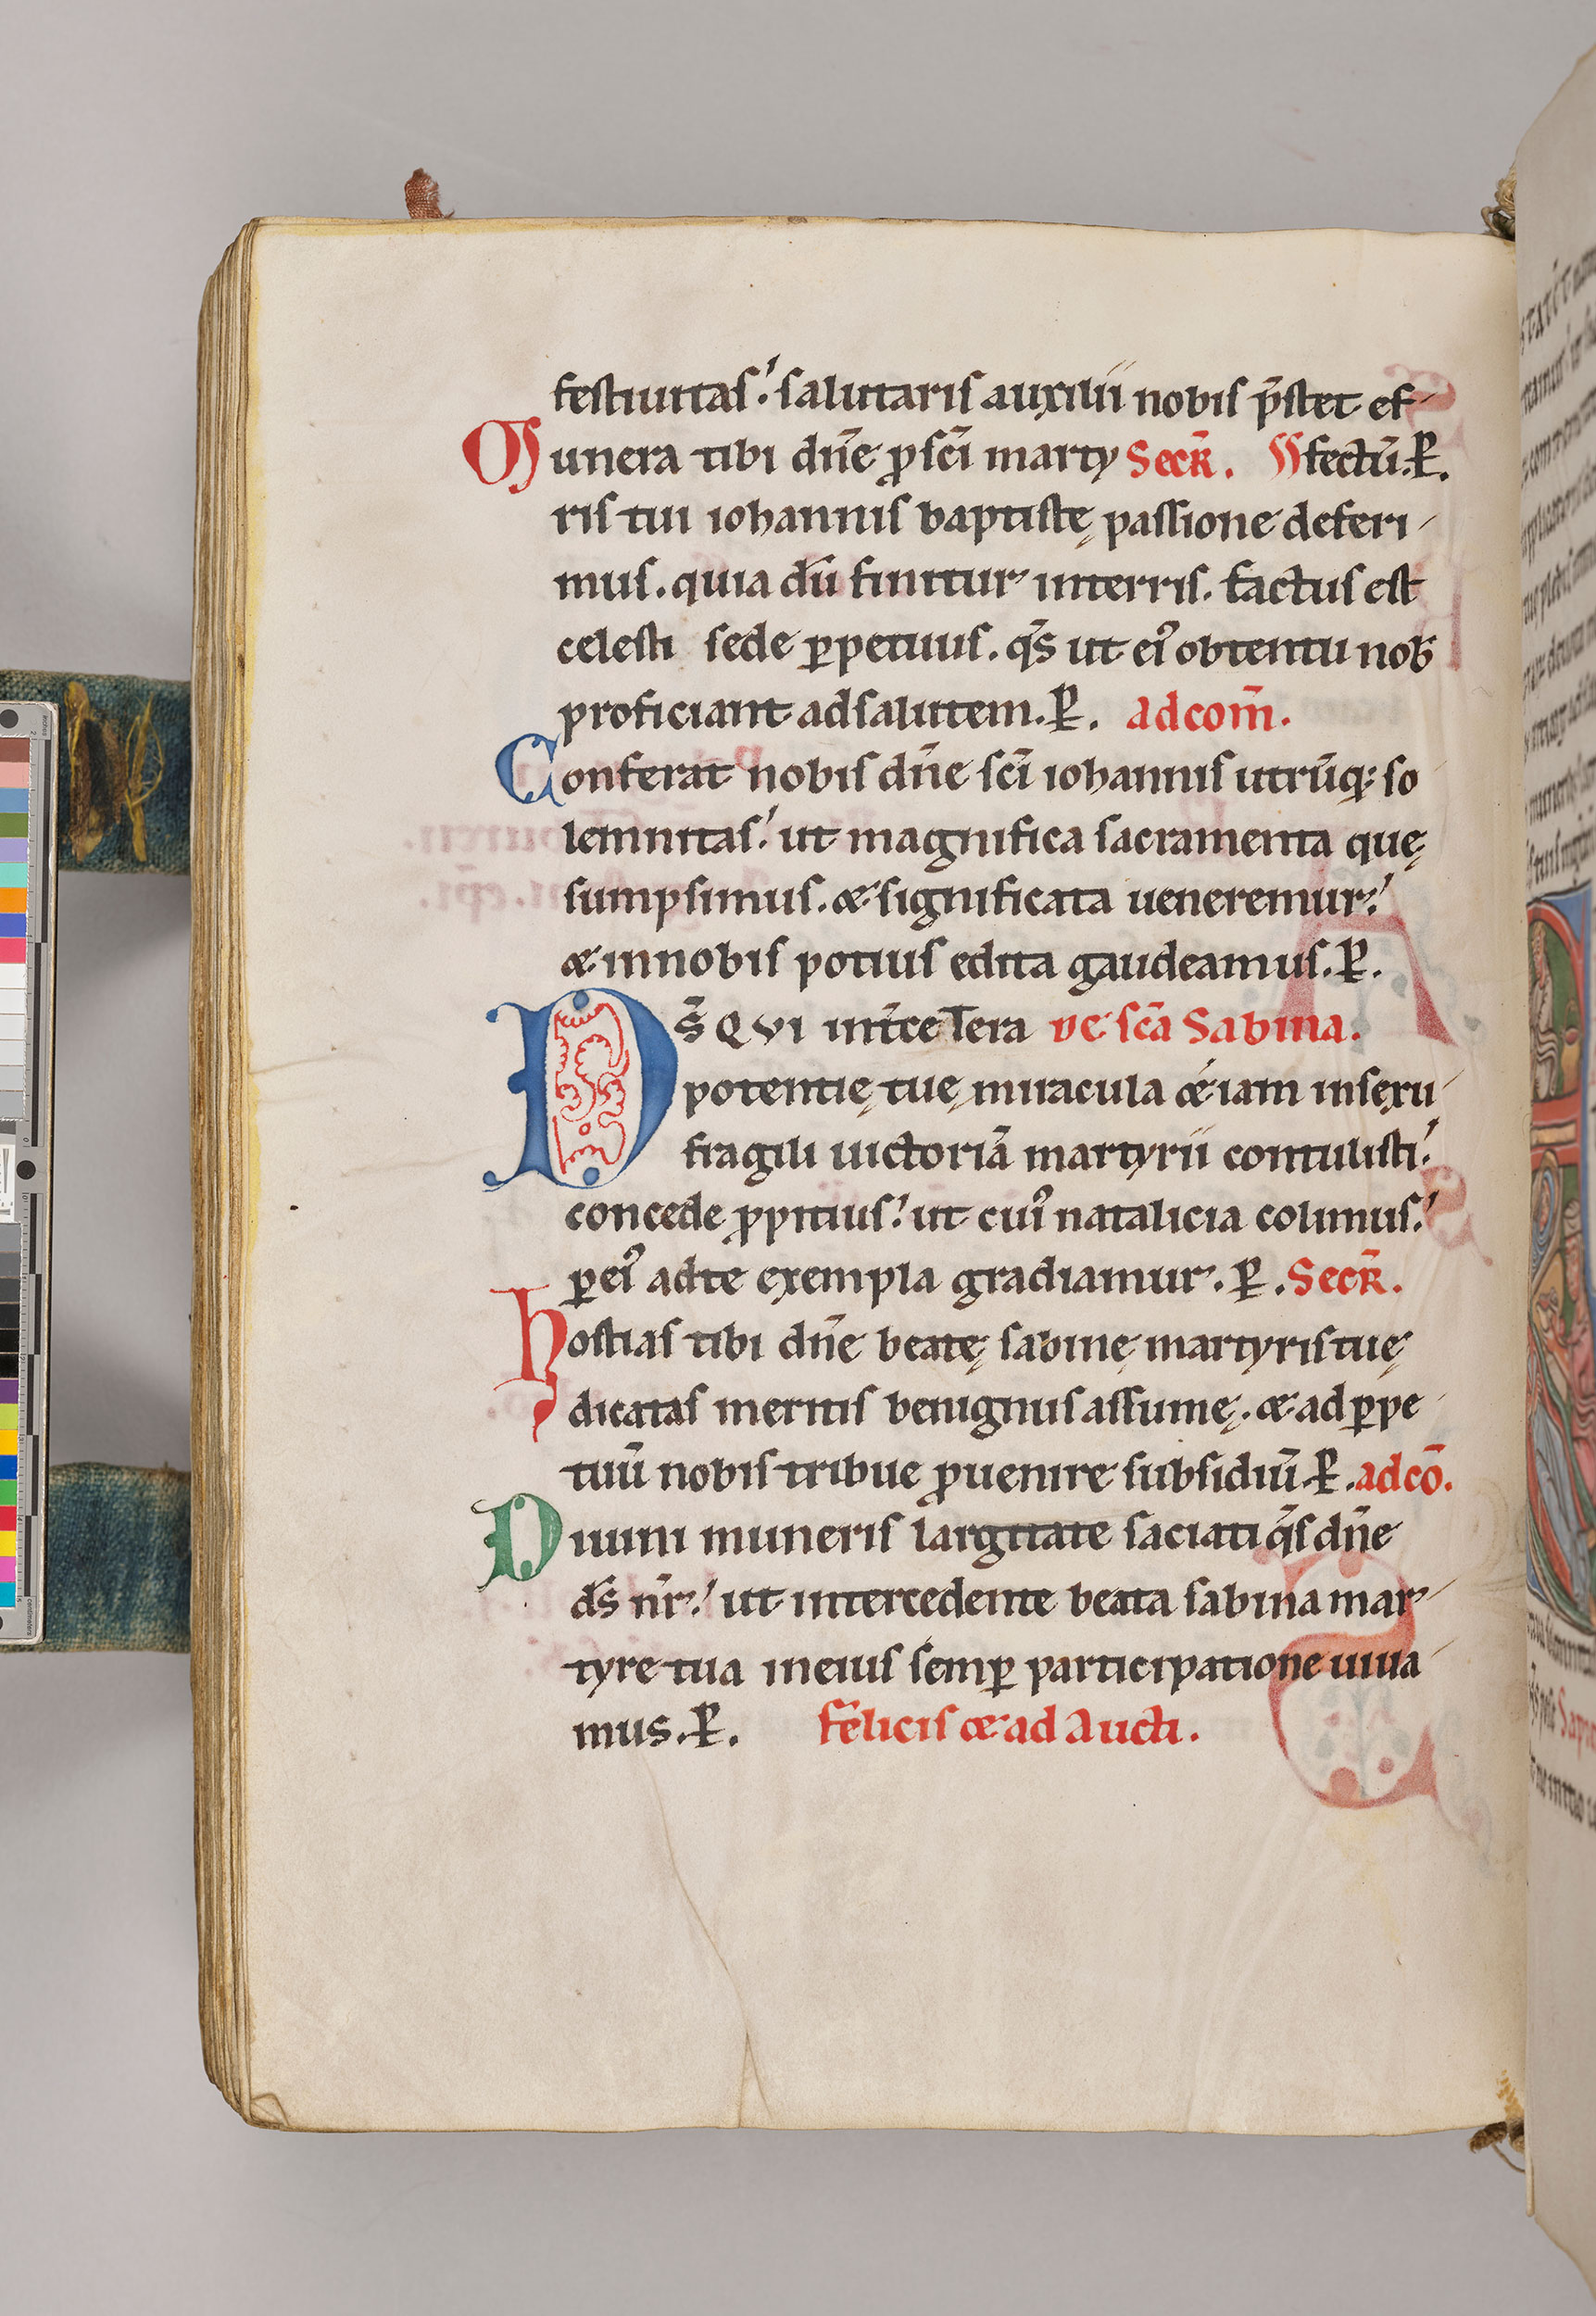 festiuitaſ. ſalutariſ auxilii nobiſ p̄ſtet ef-
Munera tibi dn̄e ꝓ ſcī marty Secr̄. fectū. ꝑ.
riſ tui iohanniſ baptiſtę paſſione deferi-
muſ. quia dū finitur interriſ. factuſ eſt
celeſti ſede ꝑpetuuſ. q̄s ut ei᷒ obtentu nob̄
proficiant adſalutem. ꝑ. ad com̄.
Conferat nobiſ dn̄e ſcī iohanniſ utrūq; ſo
lemnitaſ. ut magnifica ſacramenta quę
ſumpſimuſ. & ſignificata ueneremur.
& innobiſ potiuſ edita gaudeamuſ. ꝑ.
Ds̄ QVI int̄ cetera DE ſcā Sabina.
potentię tuę miracula &iam inſexu
fragili uictoriā martyrii contuliſti.
concede ꝓpitiuſ. ut cui᷒ natalicia colimuſ.
ꝑ ei᷒ adte exempla gradiamur. ꝑ. Secr̄.
hoſtiaſ tibi dn̄e beatę ſabinę martyriſ tuę
dicataſ meritiſ benignuſ aſſumę. & ad ꝑpe
tuū nobiſ tribue ꝓuenire ſubſidiū. ꝑ. ad cō.
Diuini muneriſ largitate ſaciati q̄ſ dn̄e
ds̄ nr̄. ut intercedente beata ſabina mar-
tyre tua in eiuſ ſemꝑ participatione uiua-
mus. ꝑ. feliciſ & ad Aucti.